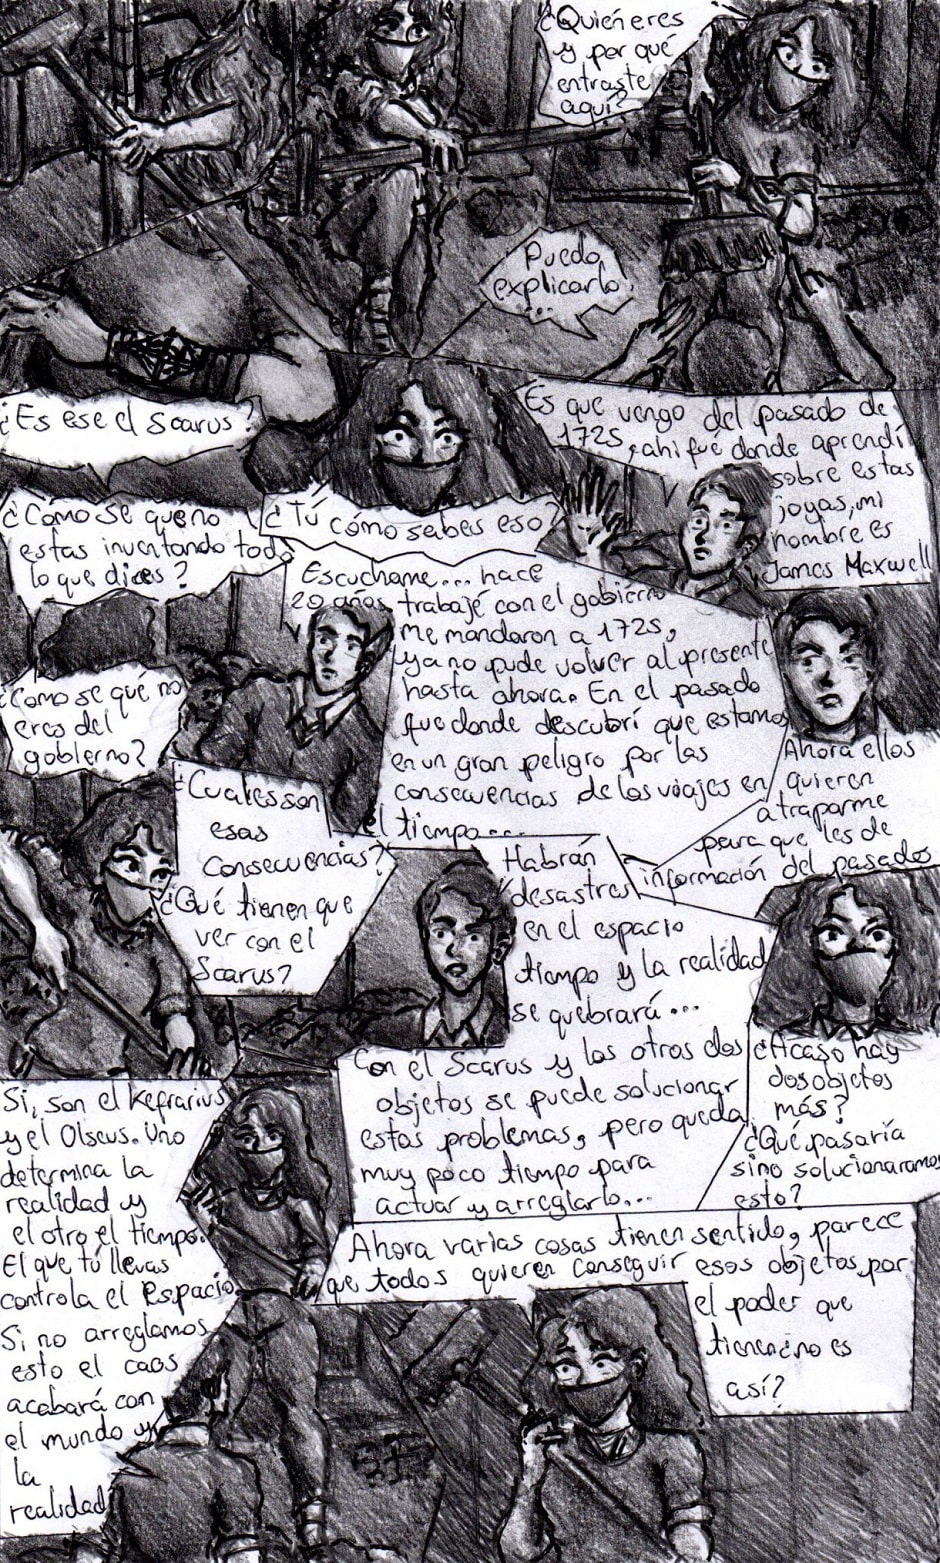 ¿Quién eres
y por qué
entraste
aquí?
Puedo
explicarlo.
...
¿Es ese el Scarus?
Es que vengo del pasado de
1725, ahi fué donde aprendí
sobre estas
joyas, mi
nombre es
James Maxwell
¿Tú cómo sabes eso?
¿Cómo se que no
estas inventando todo
lo que dices?
Escuchame... hace
20 años, trabajé con el gobierno
me mandaron a 1725,
ya no pude volver al presente
hasta ahora. En el pasado
fue donde descubrí que estamos
en un gran peligro por las
consecuencias de los viajes en
el tiempo...
¿Como se qué no
eres del
gobierno?
Ahora ellos
quieren
atraparme
para que les de
información del pasado
¿Cuales son
esas
consecuencias?
¿Qué tienen que
ver con el
Scarus?
Habrán
desastres
en el espacio
tiempo y la realidad
se quebrará...
Con el Scarus y los otros dos
objetos se puede solucionar
estos problemas, pero queda
muy poco tiempo para
actuar y arreglarlo...
¿Acaso hay
dos objetos
más?
¿Qué pasaría
si no solucionaramos
esto?
Si, son el Kefrarius
y el Olseus. Uno
determina la
realidad y
el otro el tiempo.
El que tú llevas
controla el Espacio.
Si no arreglamos
esto el caos
acabará con
el mundo y
la
realidad
Ahora varias cosas tienen sentido, parece
que todos quieren conseguir esos objetos por
el poder que
tienen ¿no es
así?